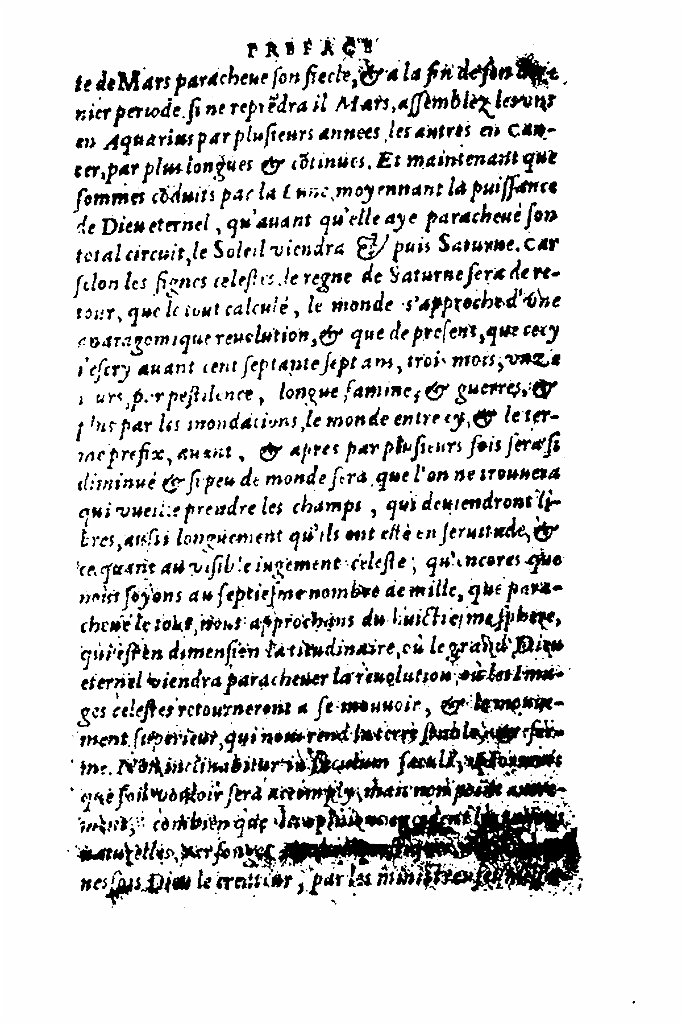 PREFACE
te de Mars paracheue ſon ſiecle, & a la fin de ſon
nier periode. ſi ne reprẽdra il Mars, aſſemblez les vns
en Aquarius par pluſieurs annees, les autres en Can-
cer, par plus longues & cõtinues. Et maintenant que
ſommes cõduits par la Lune, moyennant la puiſſance
de Dieu eternel, qu'auant qu'elle aye paracheué ſon
total circuit, le Soleil viendra & puis Saturne. Car
ſelon les ſignes celeſtes, le regne de Saturne ſera de re-
tour, que le tout calculé, le monde s'approche d'vne
anaragomique reuolution, & que de preſent, que cecy
i'eſcry auant cent ſeptante ſept ans, trois mois, vnze
iours, par peſtilence, longue famine, & guerres, &
plus par les inondations, le monde entre cy, & le ter-
me prefix, auant, & apres par pluſieurs fois ſera ſi
diminué & ſi peu de monde ſera, que l'on ne trouuera
qui vueille prendre les champs, qui deuiendront li-
bres, auſſi longuement qu'ils ont eſté en ſeruitude, &
ce quant au viſible iugement celeſte, qu'encores que
nous ſoyons au ſeptieſme nombre de mille, que para-
cheue le tout, nous approchans du huictieſme ſphere,
qui eſt en dimenſion latitudinaire, où le grand Dieu
eternel viendra paracheuer la reuolution où les Ima-
ges celeſtes retourneront a ſe mouuoir, & le mouue-
ment ſuperieur, qui nous rend la terre ſtable, & fer-
me. Non inclinabitur in ſæculum ſæculi,
que ſon vouloir ſera accomply, mais non point autre-
ment, combien que
naturelles, par ſonges
nesfois Dieu le createur, par les miniſtres